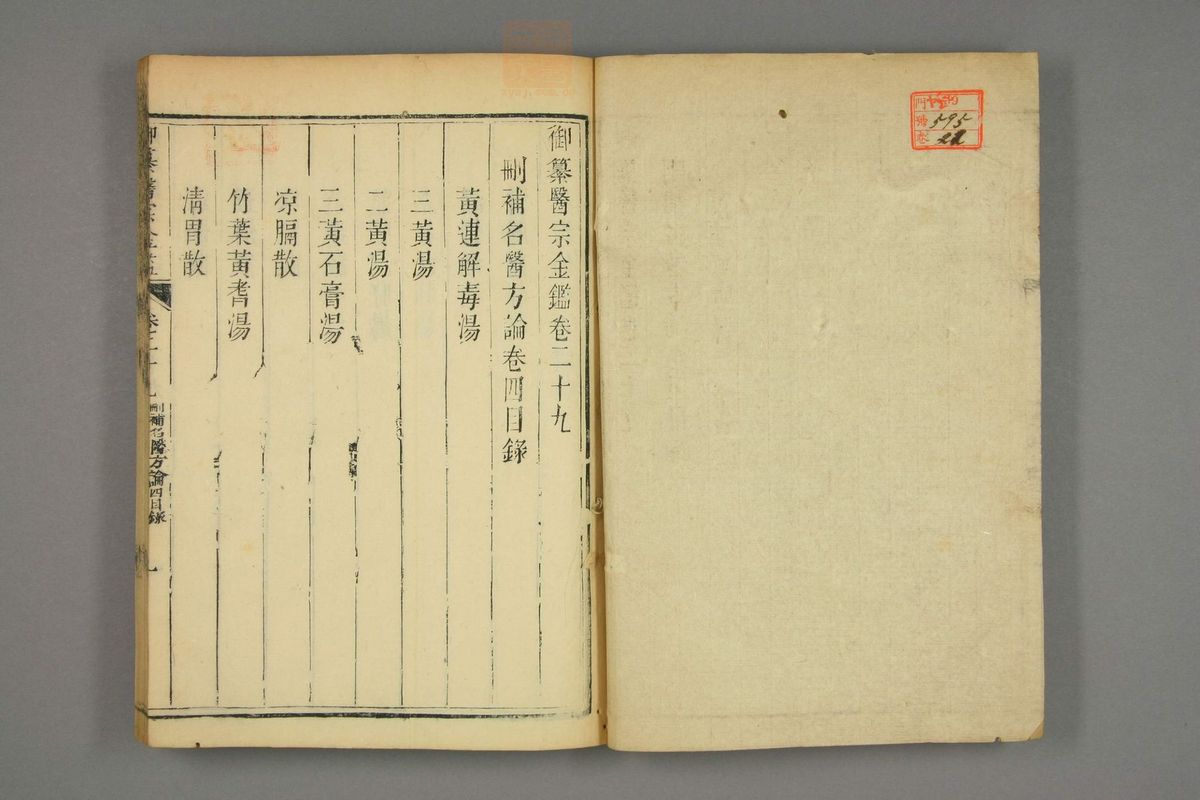 御纂醫宗金鑑卷二十九
刪補名醫方論卷四目錄
黃連解毒湯
三黃湯
二黃湯
三黃石膏湯
凉膈散
竹葉黃耆湯
清胃散
刪補名醫方論四目錄
門
號 595
卷 22